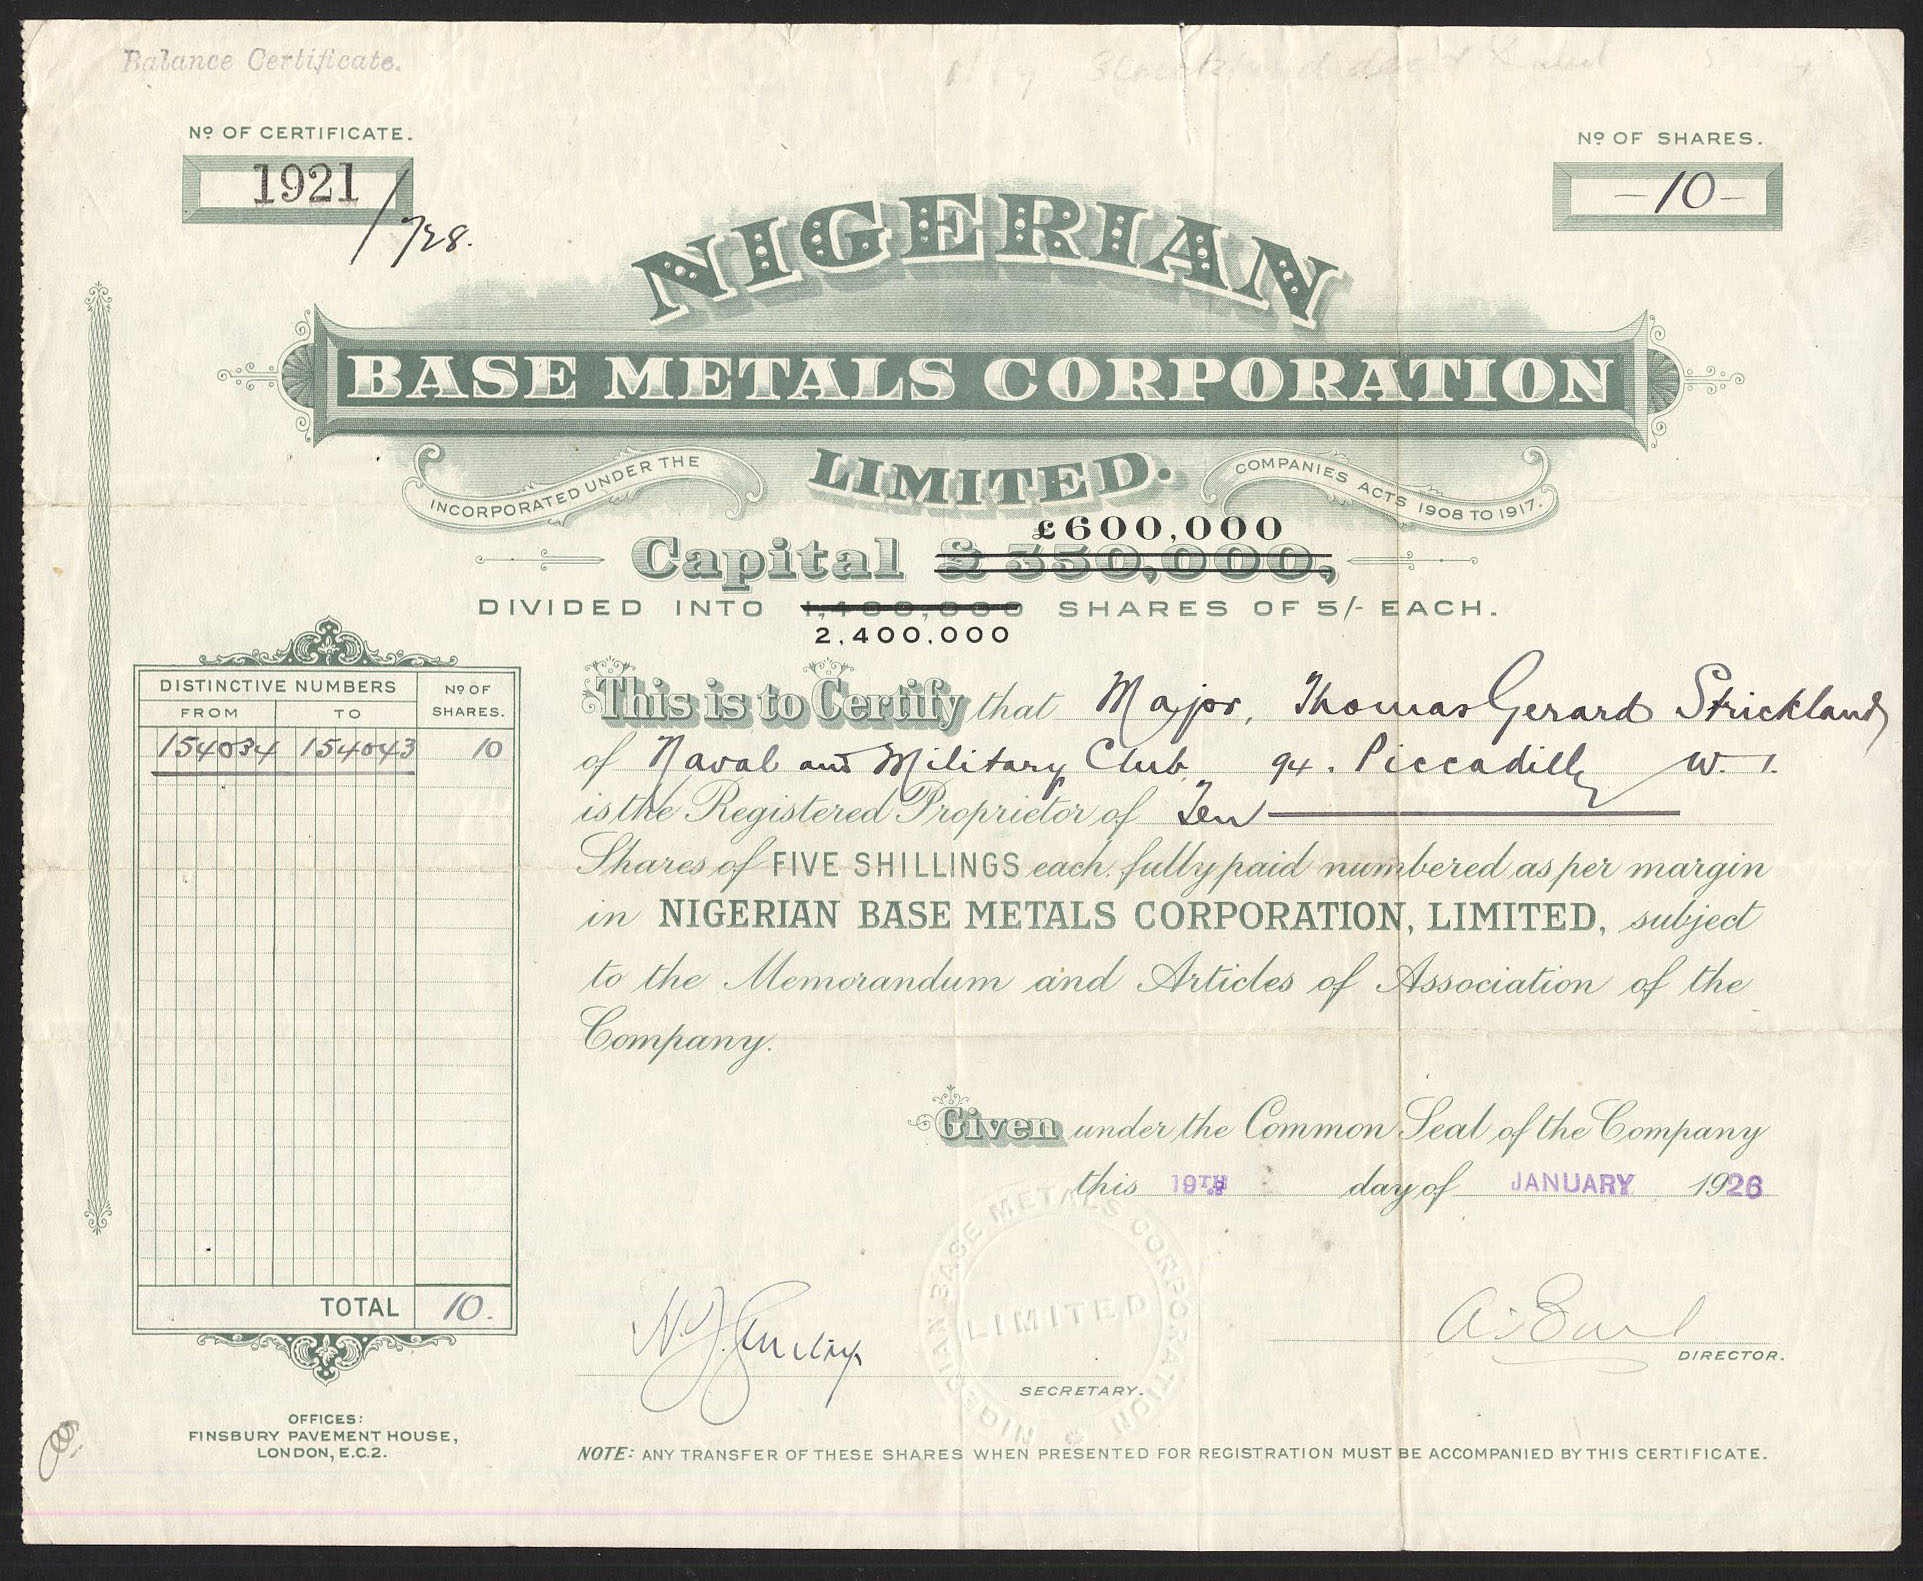 Balance Certificate.
Nº OF CERTIFICATE.
1921/728.
Nº OF SHARES.
-10-
NIGERIAN
BASE METALS CORPORATION
LIMITED.
INCORPORATED UNDER THE
COMPANIES ACTS 1908 TO 1917.
£600,000
Capital £350,000,
DIVIDED INTO 1,400,000 SHARES OF 5/- EACH.
2,400,000
DISTINCTIVE NUMBERS
FROM TO
Nº OF SHARES.
154034 154043 10
TOTAL 10.
This is to Certify that Major, Thomas Gerard Strickland
of Naval and Military Club, 94. Piccadilly W. 1.
is the Registered Proprietor of Ten
Shares of FIVE SHILLINGS each, fully paid numbered as per margin
in NIGERIAN BASE METALS CORPORATION, LIMITED, subject
to the Memorandum and Articles of Association of the
Company.
Given under the Common Seal of the Company
this 19TH day of JANUARY 1926
NIGERIAN BASE METALS CORPORATION
LIMITED
SECRETARY.
DIRECTOR.
OFFICES:
FINSBURY PAVEMENT HOUSE,
LONDON, E.C.2.
NOTE: ANY TRANSFER OF THESE SHARES WHEN PRESENTED FOR REGISTRATION MUST BE ACCOMPANIED BY THIS CERTIFICATE.